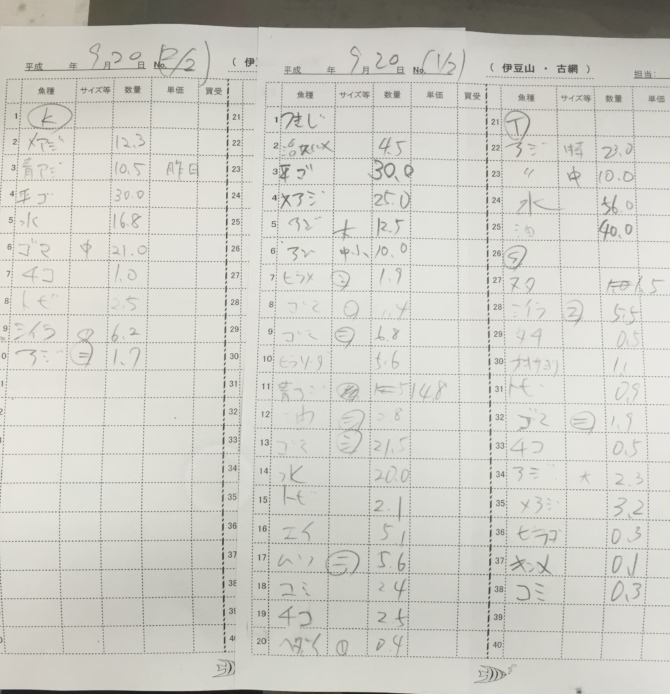 平成 年 9月20日 No.(2/2) (伊
魚種 サイズ等 数量 単価 買受
1 K
2 メアジ 12.3
3 青アジ 10.5 昨日
4 平ゴ 30.0
5 水 16.8
6 ゴマ 中 21.0
7 チコ 1.0
8 トビ 2.5
9 シイラ 6.2
0 アジ ㊂ 1.7
1
2
3
4
5
6
7
8
9
0
21
22
23
24
25
26
27
28
29
30
31
32
33
34
35
36
37
38
39
40
平成 年 9月20日 No.(1/2) (伊豆山・古網) 担当:
魚種 サイズ等 数量 単価 買受
1 つきじ
2 4.5
3 平ゴ 30.0
4 メアジ 25.0
5 アジ 大 12.5
6 アジ 中小 10.0
7 ヒラメ ㊁ 1.9
8 ゴマ 1.4
9 ゴマ ㊂ 6.8
10 5.6
11 青アジ 14.8
12 ㊂ 2.8
13 ゴマ ㊂ 21.5
14 水 20.0
15 トビ 2.1
16 エイ 5.1
17 ムツ ㊂ 5.6
18 コミ 2.4
19 チコ 2.5
20 ヘダイ ① 0.4
魚種 サイズ等 数量 単価
21 T
22 アジ 23.0
23 〃 中 10.0
24 水 56.0
25 40.0
26
27 1.5
28 シイラ ㊁ 5.5
29 0.5
30 1.1
31 トビ 0.9
32 ゴマ ㊂ 1.9
33 チコ 0.5
34 アジ 大 2.3
35 メアジ 3.2
36 ヒラゴ 0.3
37 キンメ 0.1
38 コミ 0.3
39
40